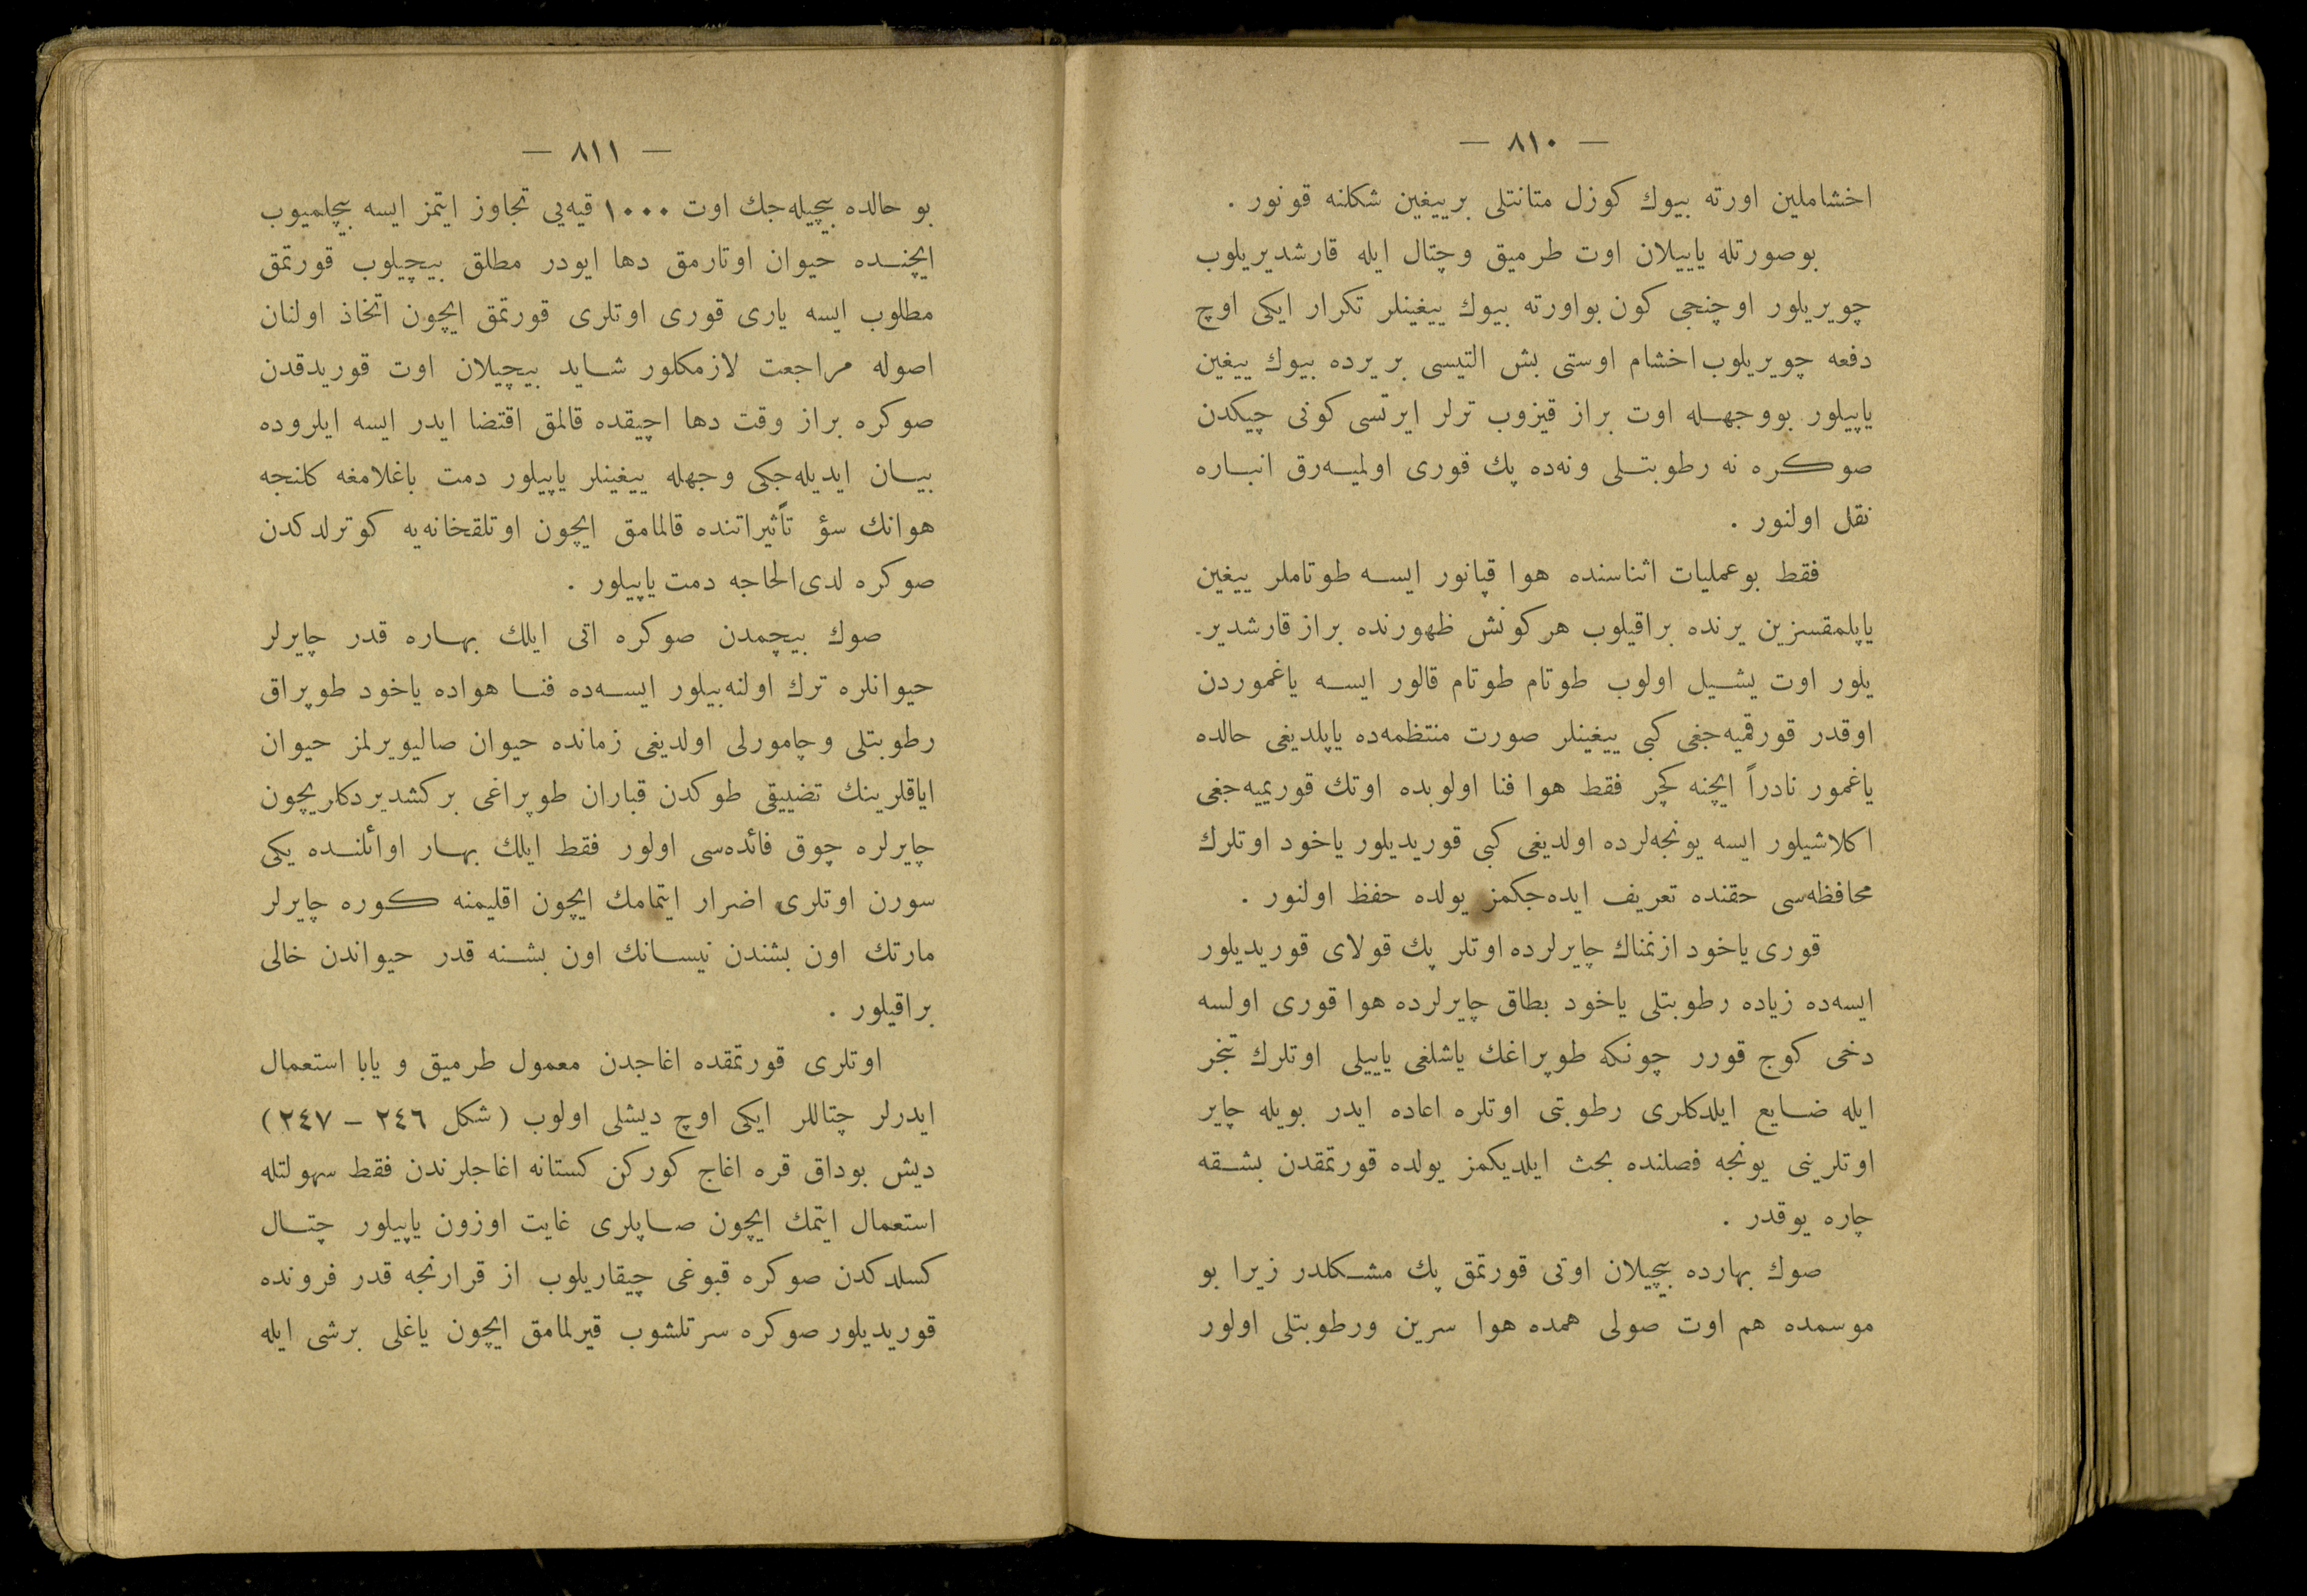 — ٨١٠ —
اخشاملین اورته بیوك كوزل متانتلی بر ییغین شكلنه قونور .
بوصورتله یاییلان اوت طرمیق و چتال ایله قارشدیریلوب
چویریلور اوچنجی كون بو اورته بیوك ییغینلر تكرار ایكی اوچ
دفعه چویریلوب اخشام اوستی بش التیسی بر یرده بیوك ییغین
یاپیلور بووجهـله اوت براز قیزوب ترلر ایرتسی كونی چیكدن
صوكره نه رطوبتـلی ونه‌ده پك قوری اولمیـه‌رق انبـاره
نقل اولنور .
فقط بو عملیات اثناسنده هوا قپانور ایسـه طوتاملر ییغین
یاپلمقسزین یرنده براقیلوب هر كونش ظهورنده براز قارشدیر-
یلور اوت یشـیل اولوب طوتام طوتام قالور ایسـه یاغموردن
اوقدر قورقمیه‌جغی كبی ییغینلر صورت منتظمه‌ده یاپلدیغی حالده
یاغمور نادراً ایچنه كچر فقط هوا فنا اولوبده اوتك قوریمیه‌جغی
اكلاشیلور ایسه یونجه‌لرده اولدیغی كبی قوریدیلور یاخود اوتلرك
محافظه‌سی حقنده تعریف ایده‌جكمز یولده حفظ اولنور .
قوری یاخود از نمناك چایرلرده اوتلر پك قولای قوریدیلور
ایسه‌ده زیاده رطوبتلی یاخود بطاق چایرلرده هوا قوری اولسه
دخی كوج قورر چونكه طوپراغك یاشلغی یاییلی اوتلرك تبخر
ایله ضـایع ایلدكلری رطوبتی اوتلره اعاده ایدر بویله چایر
اوتلرینی یونجه فصلنده بحث ایلدیكمز یولده قورتمقدن بشـقه
چاره یوقدر .
صوك بهارده بیچیلان اوتی قورتمق پك مشـكلدر زیرا بو
موسمده هم اوت صولی همده هوا سرین ورطوبتلی اولور
— ٨١١ —
بو حالده بیچیله‌جك اوت ١٠٠٠ قیه‌یی تجاوز ایتمز ایسه بیچلمیوب
ایچنـده حیوان اوتارمق دها ایودر مطلق بیچیلوب قورتمق
مطلوب ایسه یاری قوری اوتلری قورتمق ایچون اتخاذ اولنان
اصوله مراجعت لازمكلور شـاید بیچیلان اوت قوریدقدن
صوكره براز وقت دها اچیقده قالمق اقتضا ایدر ایسه ایلروده
بیـان ایدیله‌جكی وجهله ییغینلر یاپیلور دمت باغلامغه كلنجه
هوانك سؤ تأثیراتنده قالمامق ایچون اوتلقخانه‌یه كوترلدكدن
صوكره لدی‌الحاجه دمت یاپیلور .
صوك بیچمدن صوكره اتی ایلك بهـاره قدر چایرلر
حیوانلره ترك اولنه‌بیلور ایسـه‌ده فنـا هواده یاخود طوپراق
رطوبتلی و چامورلی اولدیغی زمانده حیوان صالیویرلمز حیوان
ایاقلرینك تضییقی طوكدن قباران طوپراغی بركشدیردكلریچون
چایرلره چوق فائده‌سی اولور فقط ایلك بهـار اوائلنـده یكی
سورن اوتلری اضرار ایتمامك ایچون اقلیمنه كوره چایرلر
مارتك اون بشندن نیسـانك اون بشـنه قدر حیواندن خالی
براقیلور .
اوتلری قورتمقده اغاجدن معمول طرمیق و یابا استعمال
ایدرلر چتاللر ایكی اوچ دیشلی اولوب (شكل ٢٤٦ – ٢٤٧)
دیش بوداق قره اغاج كوركن كستانه اغاجلرندن فقط سهولتله
استعمال ایتمك ایچون صـاپلری غایت اوزون یاپیلور چتـال
كسلدكدن صوكره قبوغی چیقاریلوب از قرارنجه قدر فرونده
قوریدیلور صوكره سرتلشوب قیرلمامق ایچون یاغلی برشی ایله